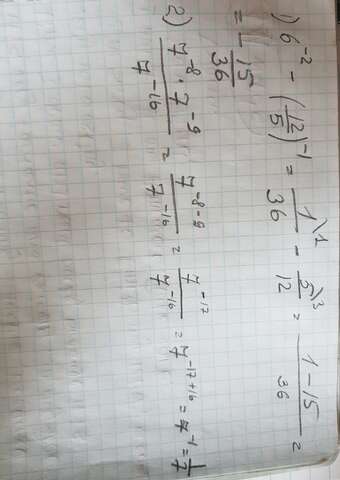 1) 6^-2 - (12/5)^-1 = 1\1/36 - 5\3/12 = 1-15/36 =
= - 15/36
2) 7^-8 · 7^-9 / 7^-16 = 7^-8-9 / 7^-16 = 7^-17 / 7^-16 = 7^-17+16 = 7^-1 = 1/7